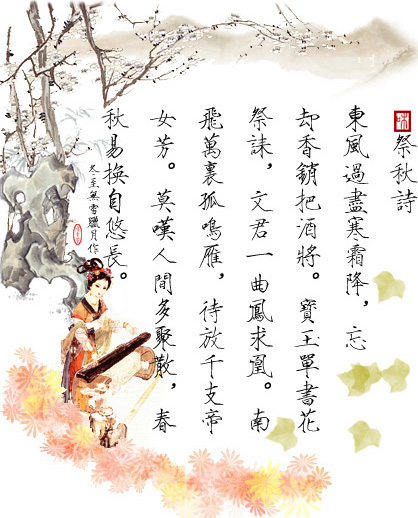 祭秋詩
東風過盡寒霜降，忘
却香銷把酒將。寶玉單書花
祭誄，文君一曲鳳求凰。南
飛萬裏孤鳴雁，待放千支帝
女芳。莫嘆人間多聚散，春
秋易換自悠長。
冬至無雪臘月作